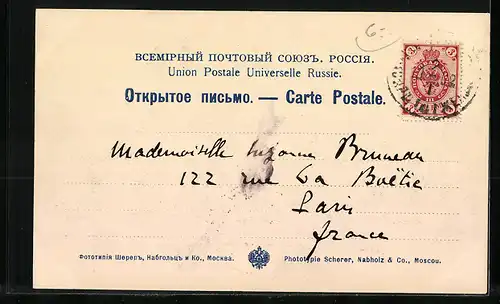 6-
ВСЕМІРНЫЙ ПОЧТОВЫЙ СОЮЗЪ. РОССІЯ.
Union Postale Universelle Russie.
Открытое письмо. — Carte Postale.
3 3
Mademoiselle Suzanne Bruneau
122 rue La Boëtie
Paris
france
Фототипія Шереръ, Набгольцъ и Ко., Москва.
Phototypie Scherer, Nabholz & Co., Moscou.